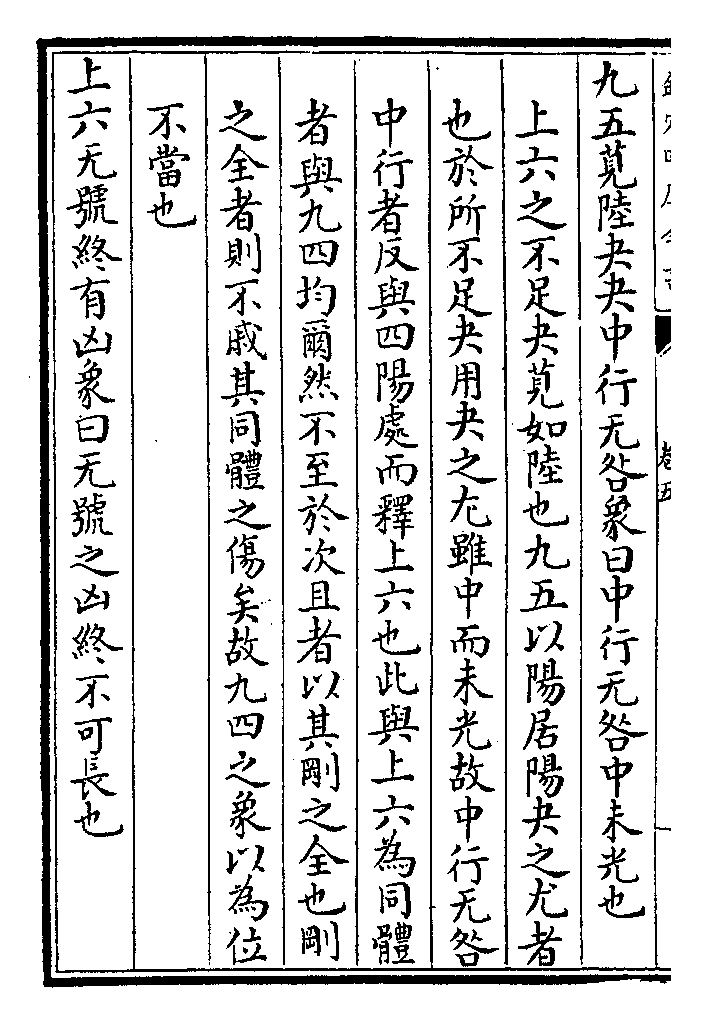 九五莧陸夬夬中行无咎象曰中行无咎中未光也
上六之不足夬莧如陸也九五以陽居陽夬之尤者
也於所不足夬用夬之尤雖中而未光故中行无咎
中行者反與四陽處而釋上六也此與上六為同體
者與九四均爾然不至於次且者以其剛之全也剛
之全者則不戚其同體之傷矣故九四之象以為位
不當也
上六无號終有凶象曰无號之凶終不可長也
卷五